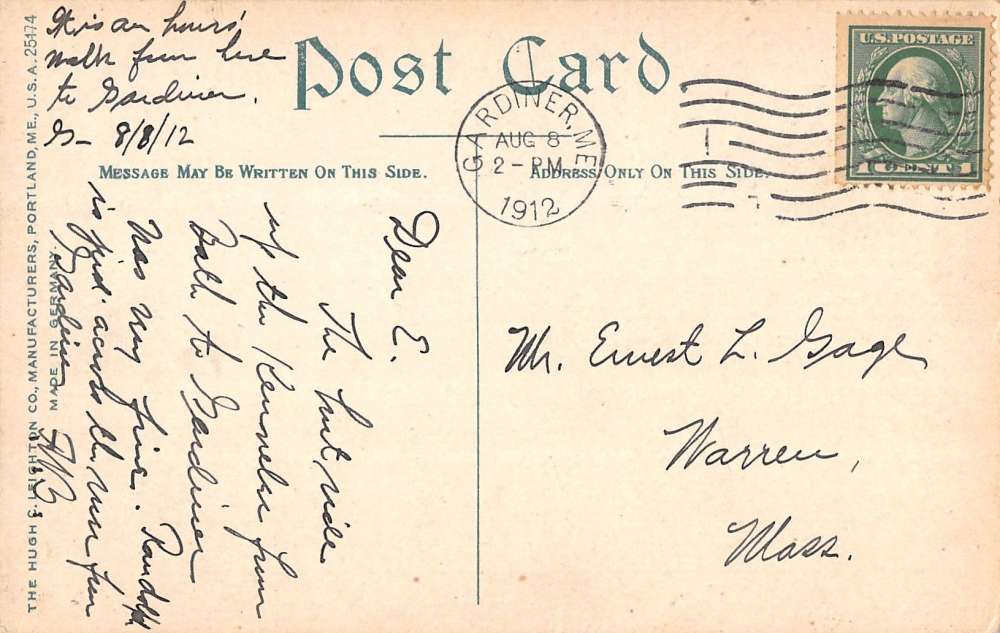 It is an hours'
walk from here
to Gardiner.
G— 8/8/12
Post Card.
MESSAGE MAY BE WRITTEN ON THIS SIDE.
ADDRESS ONLY ON THIS SIDE.
GARDINER, ME.
AUG 8
2 - PM
1912
U.S. POSTAGE
1 CENT 1
THE HUGH C. LEIGHTON CO., MANUFACTURERS, PORTLAND, ME., U.S.A. 25174
MADE IN GERMANY.
Dear E.
The boat ride
up the Kennebec from
Bath to Gardiner
was very fine. Randolph
is just across the river from
Gardiner.
Mr. Ernest L. Gage
Warren,
Mass.